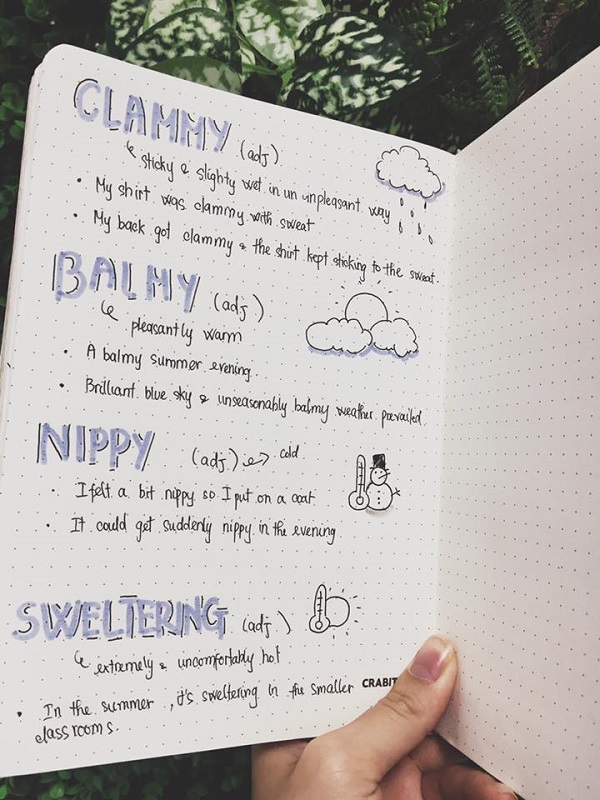 CLAMMY (adj)
sticky & slighty wet in un unpleasant way
• My shirt was clammy with sweat
• My back got clammy & the shirt kept sticking to the sweat.
BALMY (adj)
pleasantly warm
• A balmy summer evening.
• Brilliant blue sky & unseasonably balmy weather prevailed.
NIPPY (adj) cold
• I felt a bit nippy so I put on a coat
• It could get suddenly nippy in the evening
SWELTERING (adj)
extremely & uncomfortably hot
• In the summer, it's sweltering in the smaller
classrooms.
CRABIT